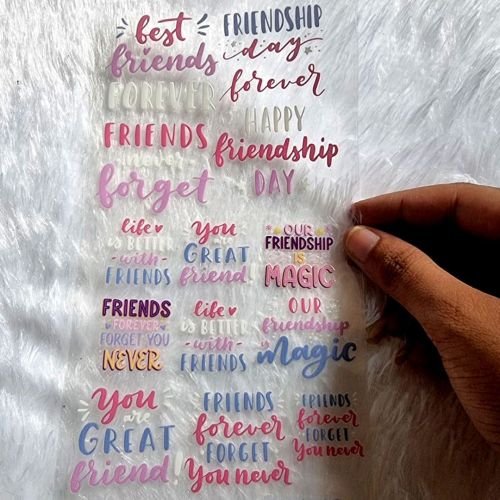 best
friends
FOREVER
FRIENDSHIP
day
forever
FRIENDS
never
forget
HAPPY
friendship
DAY
life
IS BETTER
-with-
FRIENDS
You
are
GREAT
friend
OUR
FRIENDSHIP
IS
MAGIC
FRIENDS
FOREVER
FORGET YOU
NEVER
life
IS BETTER
-with-
FRIENDS
OUR
friendship
is
Magic
You
are
GREAT
friend
FRIENDS
forever
FORGET
You never
FRIENDS
forever
FORGET
You never